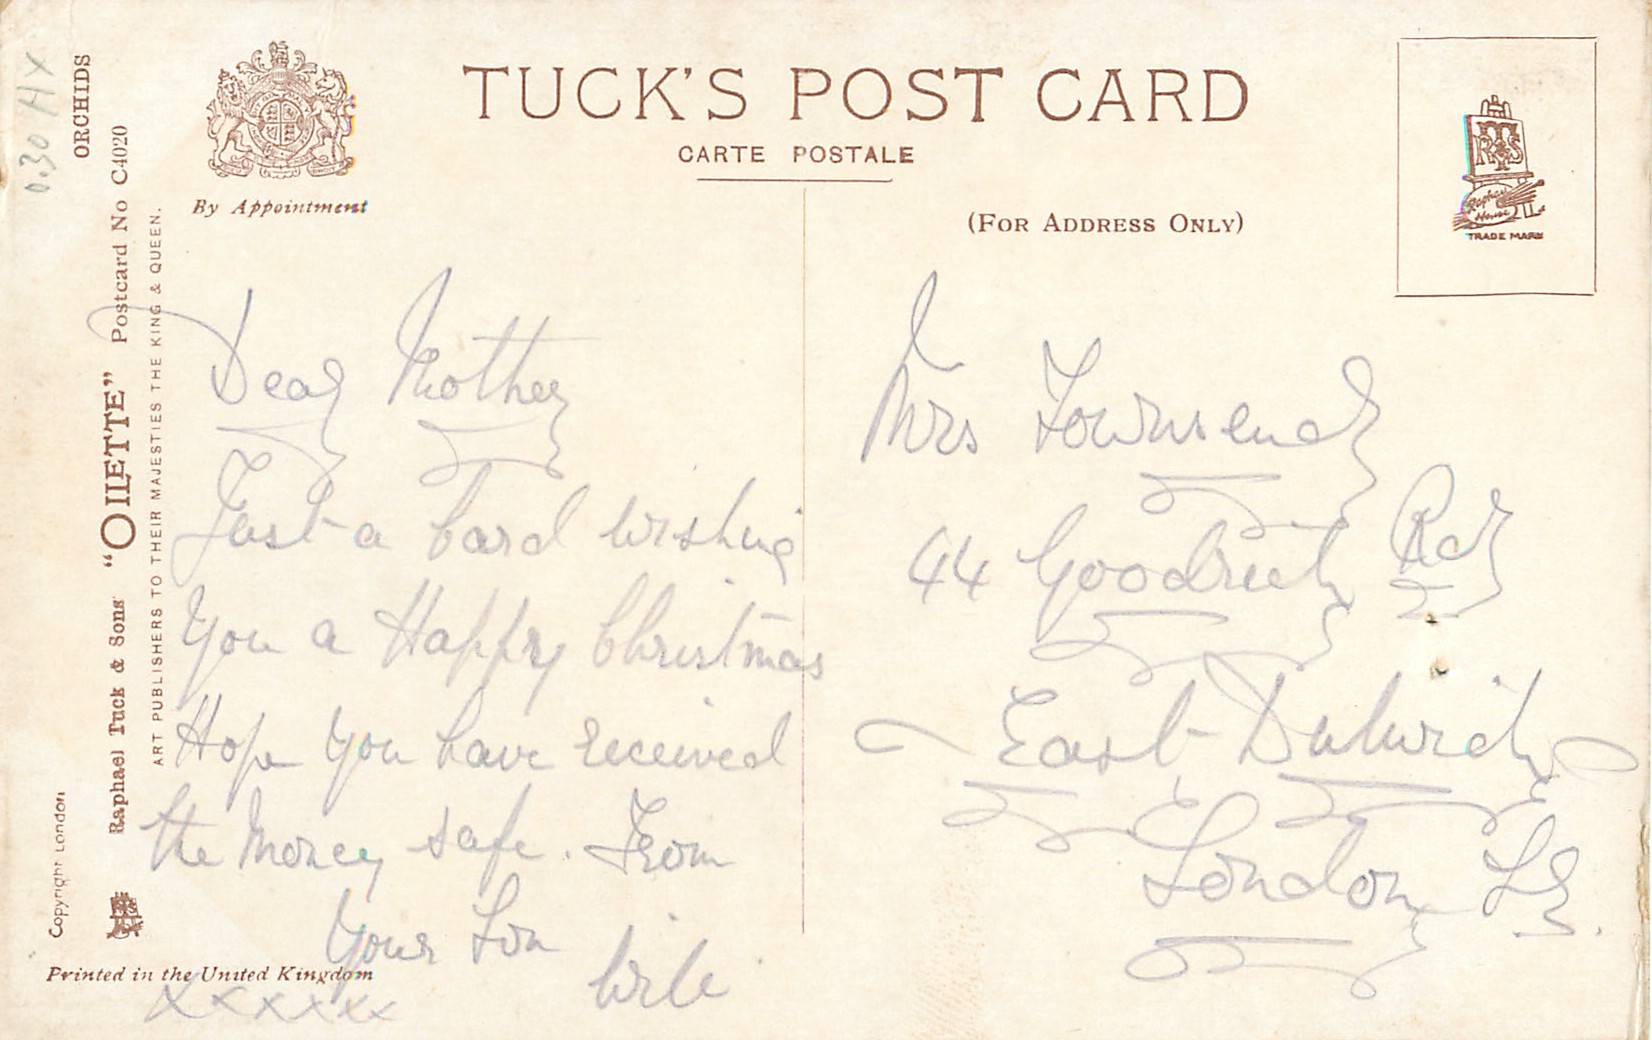 TUCK'S POST CARD
CARTE POSTALE
By Appointment
(FOR ADDRESS ONLY)
RTS
Raphael House
TRADE MARK
0.30
ORCHIDS
Raphael Tuck & Sons' "OILETTE" Postcard No C4020
ART PUBLISHERS TO THEIR MAJESTIES THE KING & QUEEN.
Copyright London
Dear Mother
Just a Card wishing
You a Happy Christmas
Hope You have received
the Money safe. From
Your Son
Printed in the United Kingdom
xxxxxx
Mrs Townsend
44 Goodrich Rd
East Dulwich
London